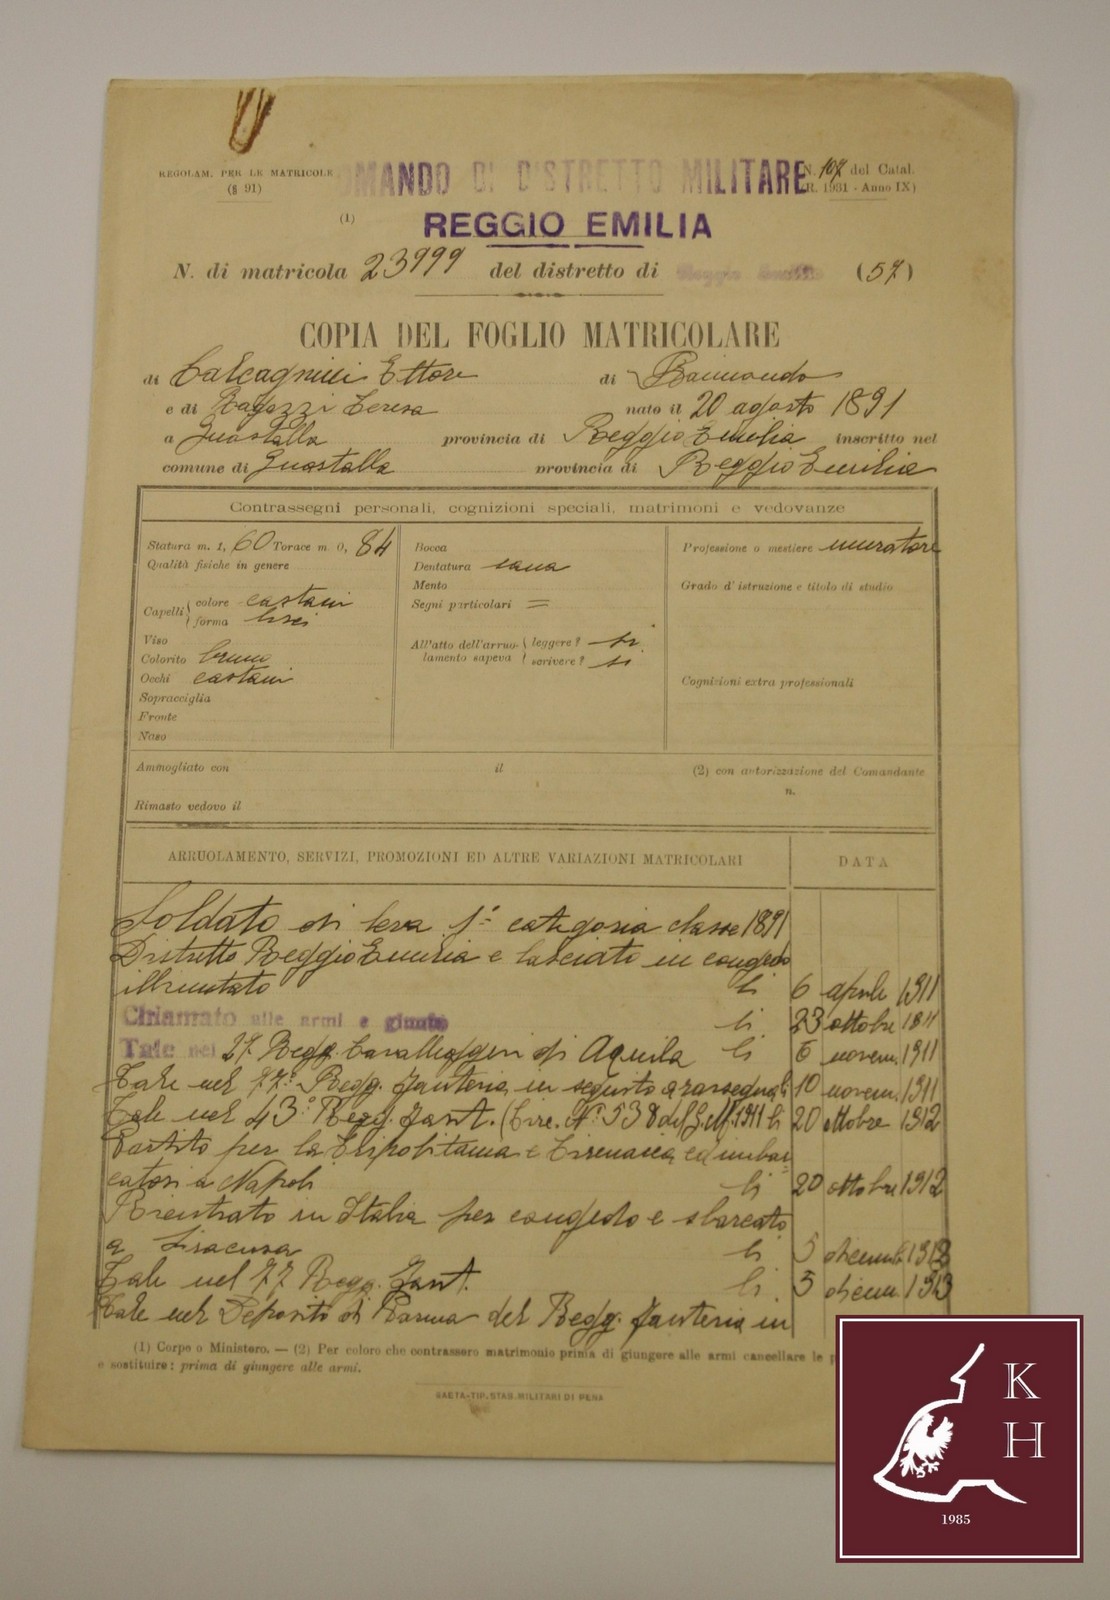 REGOLAM. PER LE MATRICOLE
(§ 91)
OMANDO DI DISTRETTO MILITARE
N. 107 del Catal.
(R. 1931 - Anno IX)
(1)
REGGIO EMILIA
N. di matricola 23999 del distretto di Reggio Emilia (57)
COPIA DEL FOGLIO MATRICOLARE
di Ettore di Raimondo
e di Ragazzi Teresa nato il 20 agosto 1891
a Guastalla provincia di Reggio Emilia inscritto nel
comune di Guastalla provincia di Reggio Emilia
Contrassegni personali, cognizioni speciali, matrimoni e vedovanze
Statura m. 1, 60 Torace m. 0, 84
Qualità fisiche in genere
Capelli colore castani
forma lisci
Viso
Colorito bruno
Occhi castani
Sopracciglia
Fronte
Naso
Bocca
Dentatura sana
Mento
Segni particolari =
All'atto dell'arruo- leggere? si
lamento sapeva scrivere? si
Professione o mestiere muratore
Grado d'istruzione e titolo di studio
Cognizioni extra professionali
Ammogliato con il (2) con autorizzazione del Comandante
n.
Rimasto vedovo il
ARRUOLAMENTO, SERVIZI, PROMOZIONI ED ALTRE VARIAZIONI MATRICOLARI DATA
Soldato di leva 1ª categoria classe 1891
Distretto Reggio Emilia e lasciato in congedo
illimitato li 6 aprile 1911
Chiamato alle armi e giunto li 23 ottobre 1911
Tale nel 27 Regg. Cavalleggeri di Aquila li 6 novem. 1911
Tale nel 77º Regg. Fanteria in seguito a rassegna li 10 novem. 1911
Tale nel 43º Regg. Fant. (Circ. Nº 538 del G. M. 1911 li 20 ottobre 1912
Partito per la Tripolitania e Cirenaica ed imbar
catosi a Napoli li 20 ottobre 1912
Rientrato in Italia per congedo e sbarcato
a Siracusa li 5 dicemb. 1912
Tale nel 77 Regg. Fant. li 5 dicem. 1913
Tale nel Deposito di Parma del Regg. Fanteria in
(1) Corpo o Ministero. — (2) Per coloro che contrassero matrimonio prima di giungere alle armi cancellare le p
e sostituire: prima di giungere alle armi.
GAETA-TIP. STAB. MILITARI DI PENA
K
H
1985